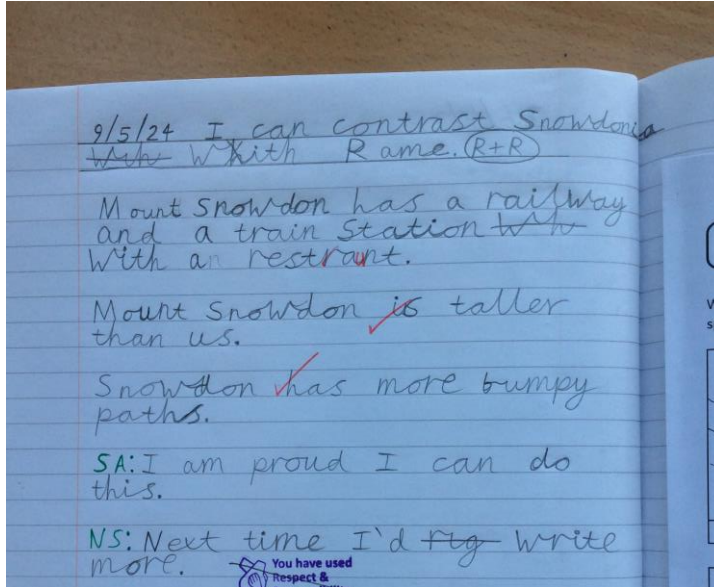 9/5/24 I can contrast Snowdonia
Whith Rame. R+R
Mount Snowdon has a railway
and a train Station
With an restraunt.
Mount Snowdon is taller
than us.
Snowdon has more bumpy
paths.
SA: I am proud I can do
this.
NS: Next time I'd write
more.
You have used
Respect &